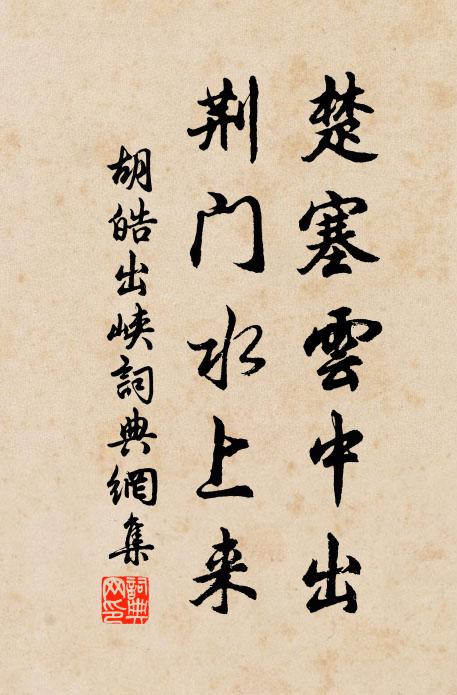 楚塞雲中出
荆门水上来
胡皓出峡詞典網集
詞典网印